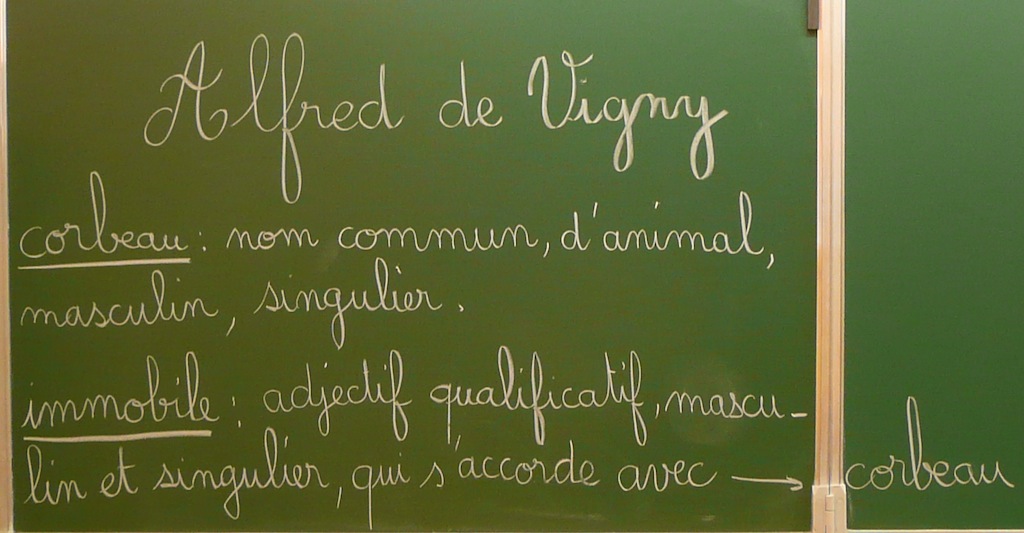 Alfred de Vigny
corbeau : nom commun, d'animal,
masculin, singulier.
immobile : adjectif qualificatif, mascu-
lin et singulier, qui s'accorde avec → corbeau